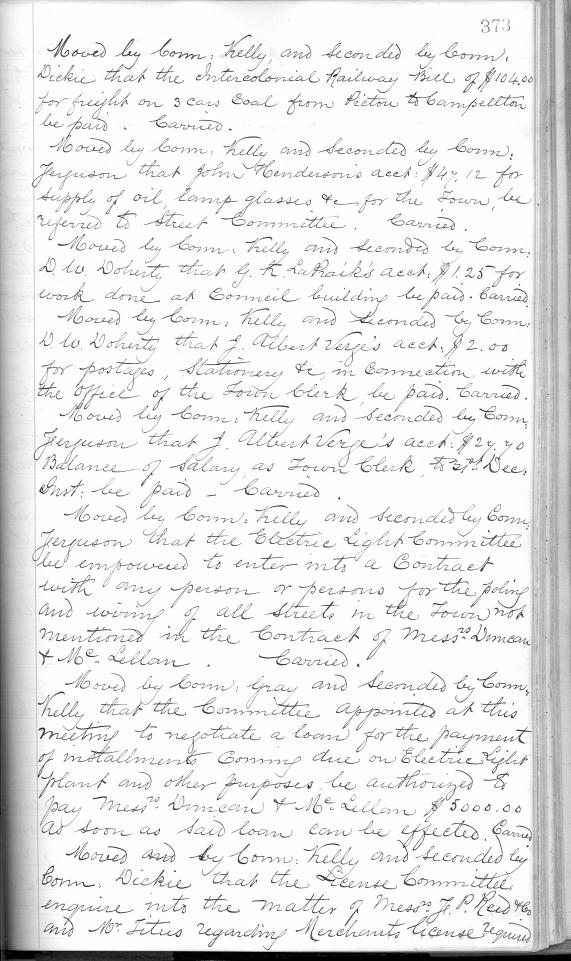 373
Moved by Conn: Kelly, and Seconded by Conn:
Dickie that the Intercolonial Railway Bill of $104.00
for freight on 3 cars Coal from Pictou to Campellton
be paid. Carried.
Moved by Conn: Kelly and Seconded by Conn:
Ferguson that John Henderson's acct: $47.12 for
supply of oil, lamp glasses &c for the Town, be
referred to Street Committee. Carried.
Moved by Conn: Kelly and seconded by Conn:
D. W. Doherty that G. K. acct: $1.25 for
work done at Council building be paid. Carried
Moved by Conn: Kelly and Seconded by Conn:
D. W. Doherty that J. Albert Verge's acct: $2.00
for postages, Stationery &c, in Connection with
the Office of the Town Clerk, be paid. Carried.
Moved by Conn: Kelly and Seconded by Conn:
Ferguson that J. Albert Verge's acct:
Balance of Salary, as Town Clerk, to 31st Dec:
Inst: be paid – Carried.
Moved by Conn: Kelly and seconded by Conn:
Ferguson that the Electric Light Committee
be empowered to enter into a Contract
with any person or persons for the poling
and wiring of all Streets in the Town not
mentioned in the Contract of Messrs Duncan
& McLellan. Carried.
Moved by Conn: Gray and Seconded by Conn:
Kelly that the Committee appointed at this
meeting to negotiate a loan for the payment
of installments Coming due on Electric Light
plant and other purposes, be authorized to
pay Messrs Duncan & McLellan $5000.00
as soon as said loan can be effected. Carried
Moved and by Conn: Kelly and seconded by
Conn: Dickie that the License Committee
enquire into the matter of Messrs P. Reid & Co
and Mr. Titus regarding Merchants license required